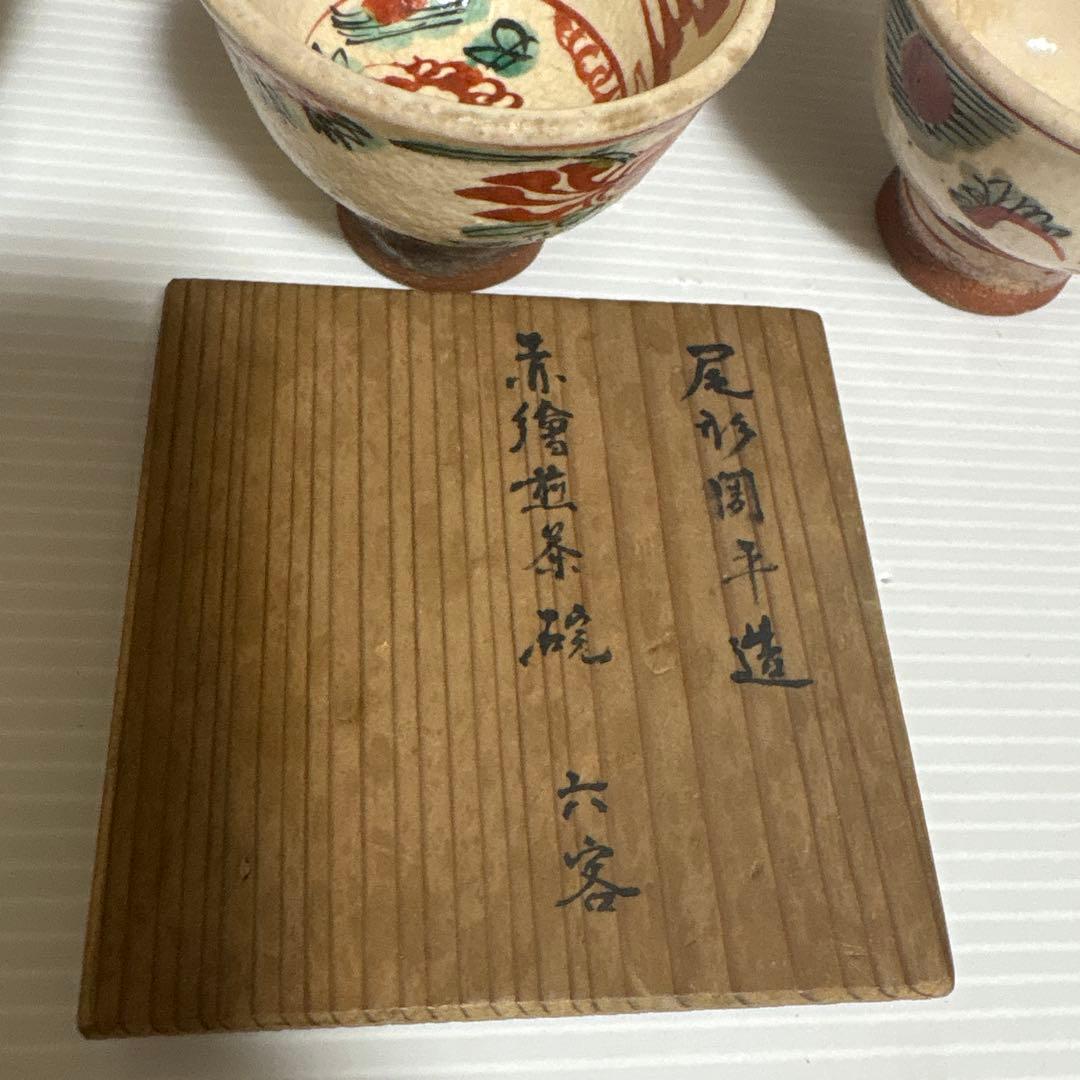 尾形周平造
赤繪煎茶碗 六客